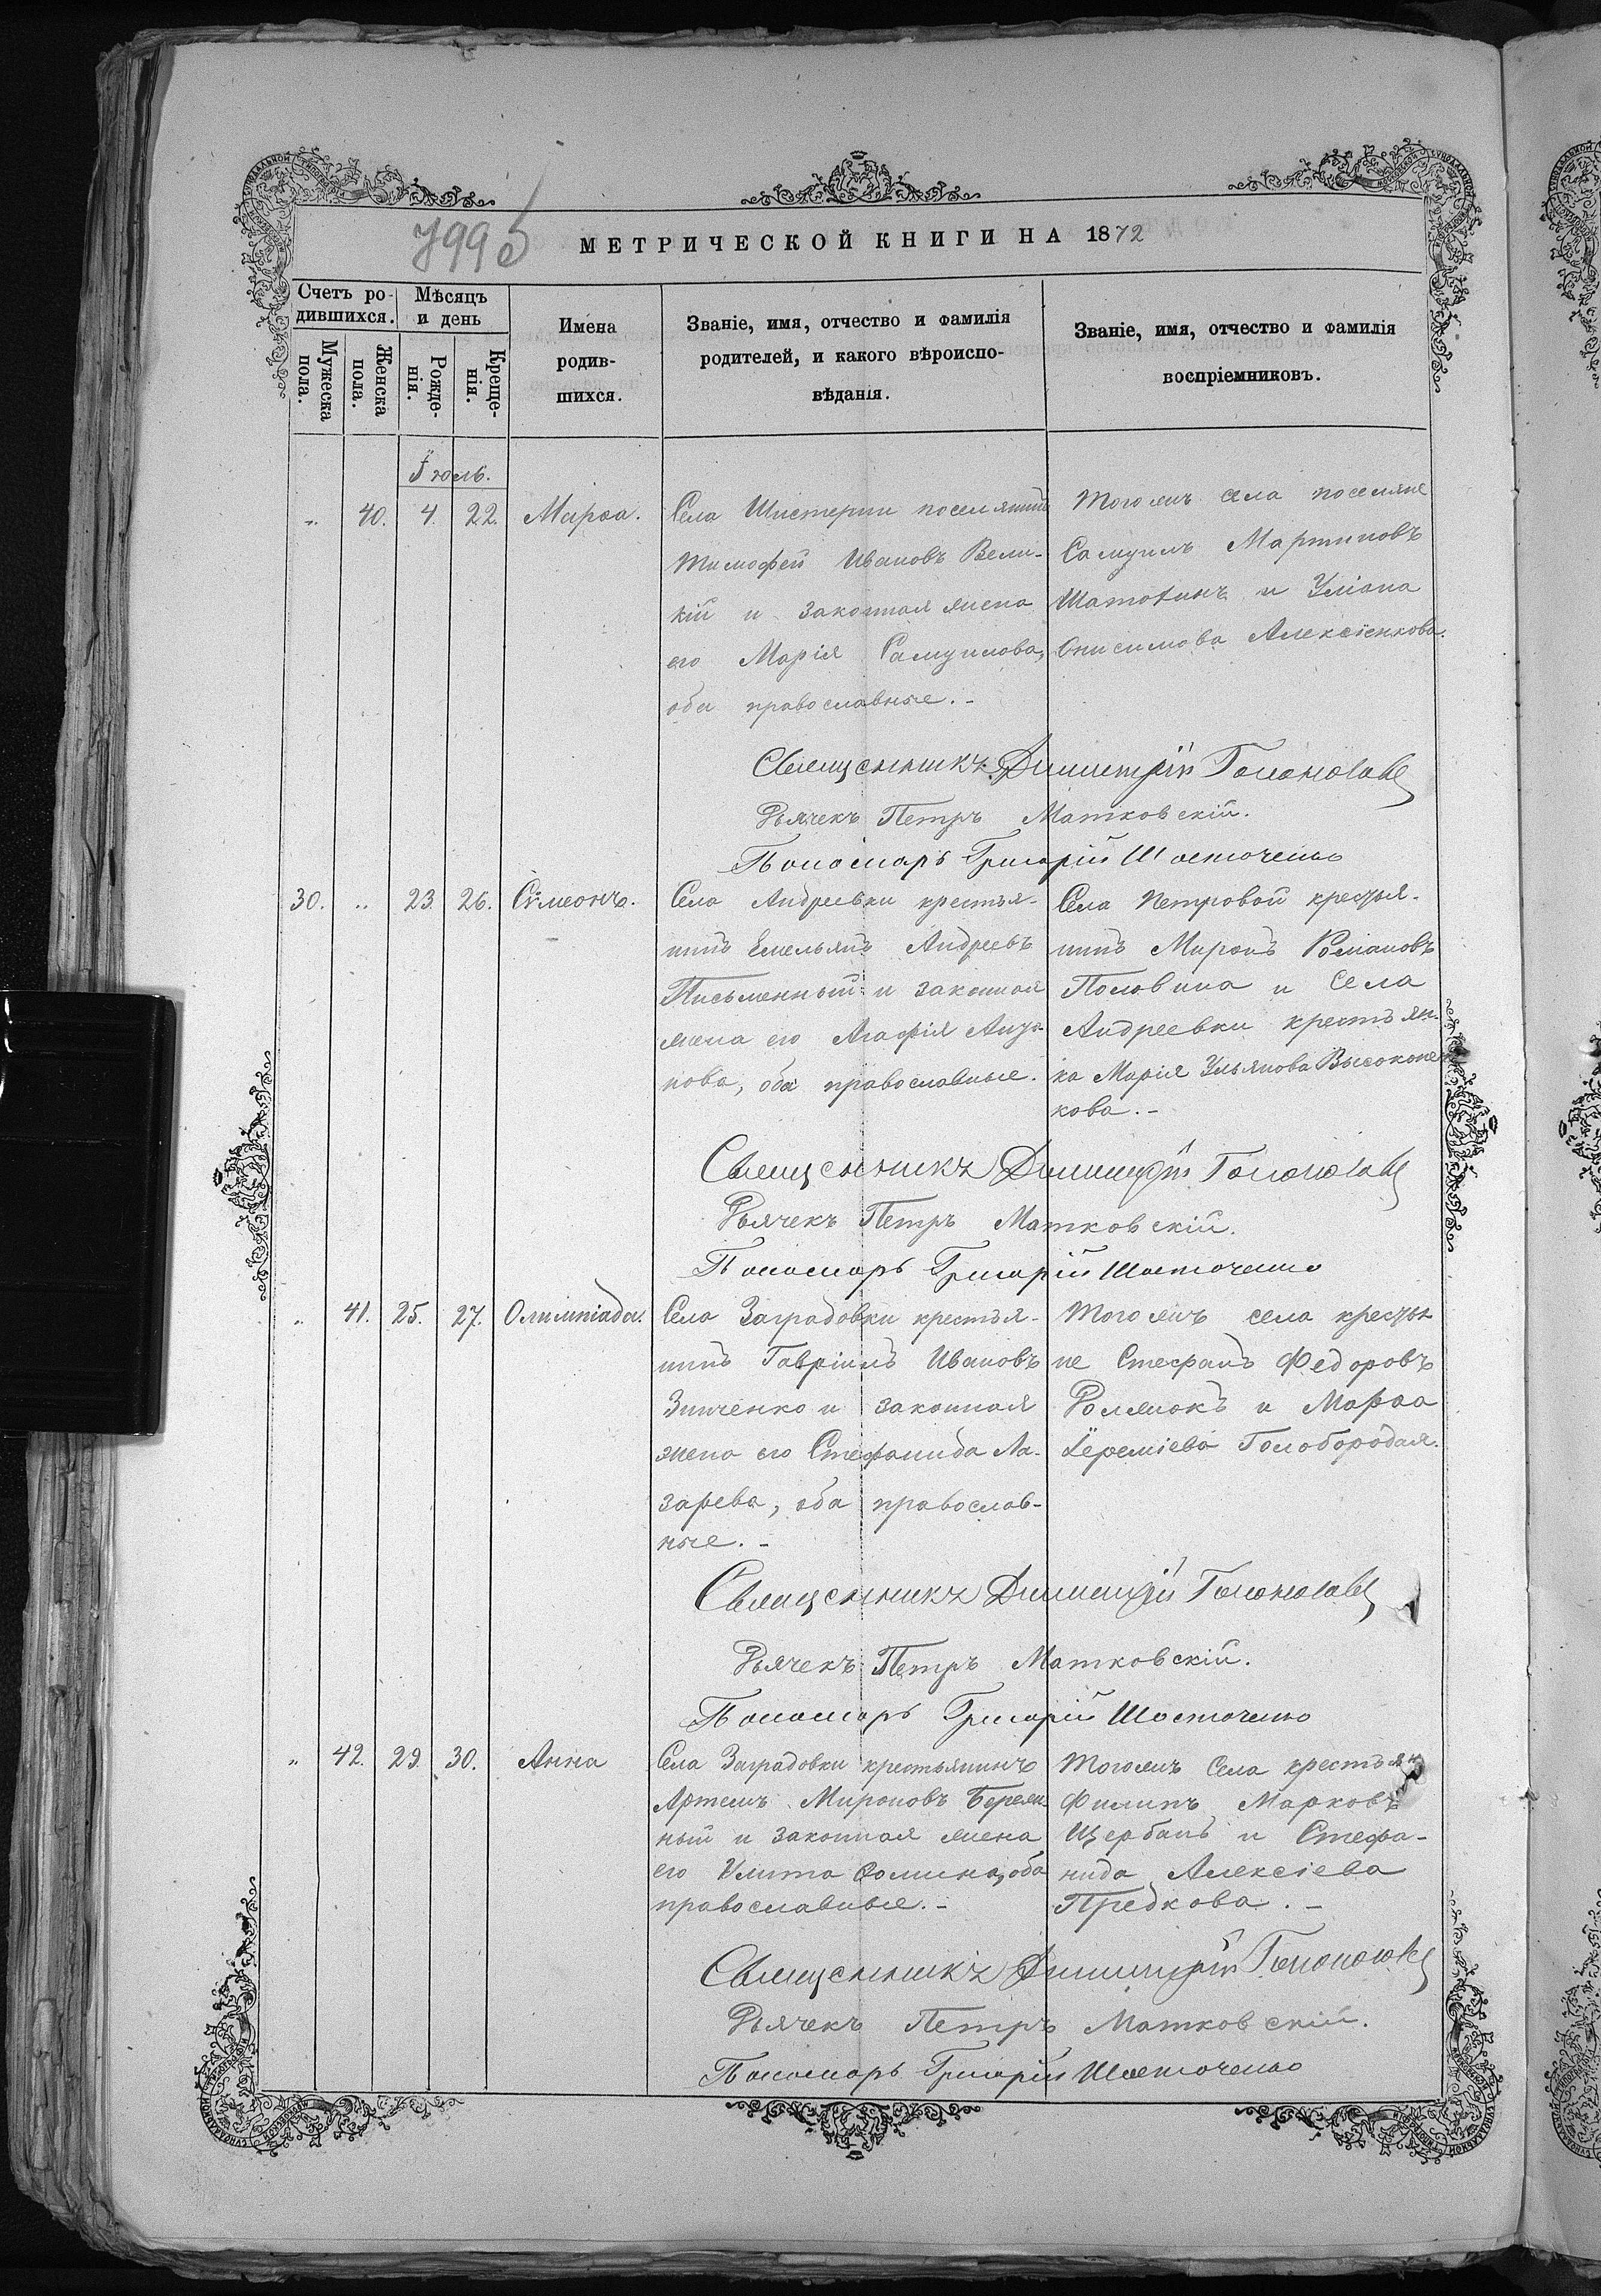 799б
МЕТРИЧЕСКОЙ КНИГИ НА 1872
Счетъ ро-
дившихся.
Мѣсяцъ
и день
Мужеска
пола.
Женска
пола.
Рожде-
нія.
Креще-
нія.
Имена
родив-
шихся.
Званіе, имя, отчество и фамилія
родителей, и какого вѣроиспо-
вѣданія.
Званіе, имя, отчество и фамилія
воспріемниковъ.
Іюль.
„ 40. 4. 22. Марѳа.
Села Шестерни поселянинъ
Тимофей Ивановъ Вели-
кій и законная жена
его Марія Самуилова,
оба православные.-
Тогожъ села поселяне
Самуилъ Мартиновъ
и Уліана
Онисимова Алексіенкова.
Священникъ Димитрій
Дьячекъ Петръ Матковскій.
Пономарь Григорій Шосточенко
30. „ 23. 26. Сѵмеонъ.
Села Андреевки крестья-
нинъ Емельянъ Андреевъ
Письменный и законная
жена его Агафія
нова, оба православные.
Села Петровой крестья-
нинъ Миронъ Романовъ
Половина и Села
Андреевки крестьян-
ка Марія Ульянова
кова.-
Священникъ Димитрій
Дьячекъ Петръ Матковскій.
Пономарь Григорій Шосточенко
„ 41. 25. 27. Олимпіада.
Села Заградовки крестья-
нинъ Гавріилъ Ивановъ
Зинченко и законная
жена его Стефанида Ла-
зарева, оба православ-
ные.-
Тогожъ села крестья
не Стефанъ Федоровъ
и Марѳа
Іереміева Голобородая.
Священникъ Димитрій
Дьячекъ Петръ Матковскій.
Пономарь Григорій Шосточенко
„ 42. 29. 30. Анна
Села Заградовки крестьянинъ
Артемъ Мироновъ Береж-
ный и законная жена
его Улита Ѳомина, оба
православные.-
Тогожъ Села крестьян
Филипъ Марковъ
Щербань и Стефа-
нида Алексіева
Предкова.-
Священникъ Димитрій
Дьячекъ Петръ Матковскій.
Пономарь Григорій Шосточенко